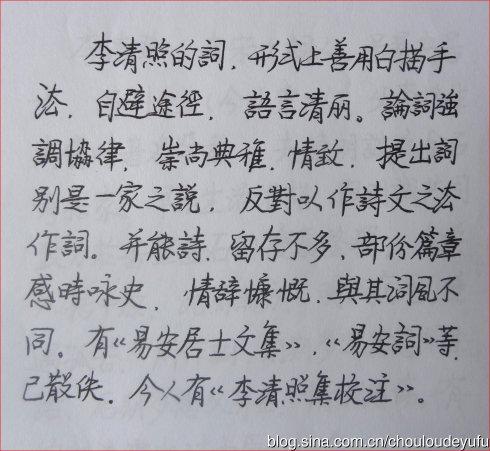 李清照的詞，形式上善用白描手
法，自避途徑，語言清丽。論詞強
調協律，崇尚典雅，情致，提出詞
别是一家之説，反對以作詩文之法
作詞。并能詩，留存不多，部份篇章
感時咏史，情辞慷慨，與其词風不
同。有《易安居士文集》，《易安詞》等，
已散佚。今人有《李清照集校注》。
blog.sina.com.cn/chouloudeyufu